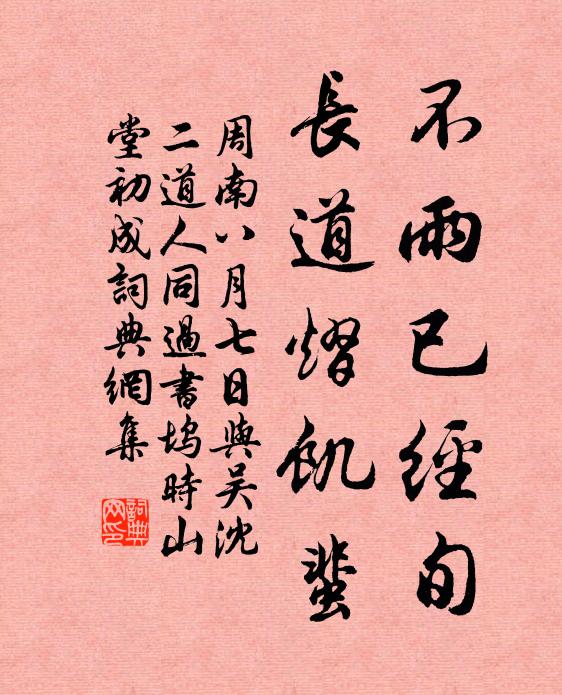 不雨已經旬
長道熠飢蜚
周南八月七日與吴沈
二道人同過書塢時山
堂初成詞典網集
詞典
网印